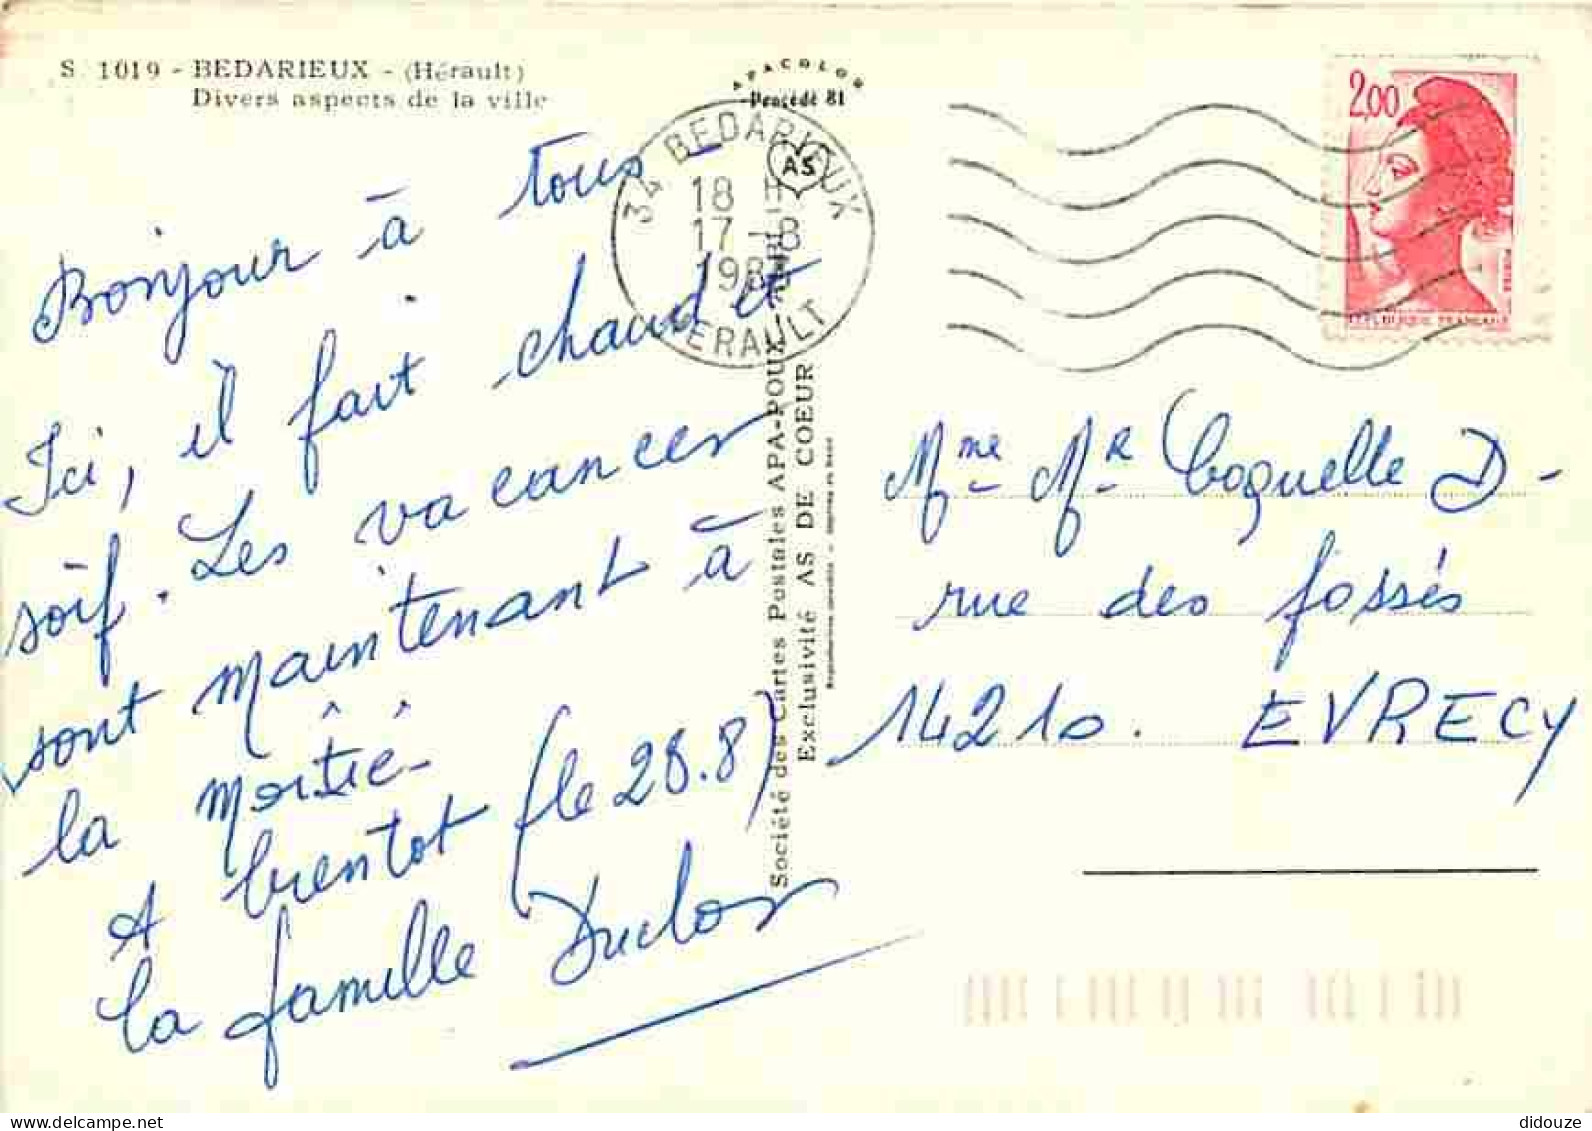 S. 1019 - BEDARIEUX - (Hérault)
Divers aspects de la ville
APACOLOR
Procédé 81
AS
34 BEDARIEUX
18 H
17 - 8
198
HERAULT
2,00
REPUBLIQUE FRANÇAISE
POSTES
Bonjour à tous
Ici, il fait chaud et
soif. Les vacances
sont maintenant à
la moitié.
A bientot (le 28.8)
la famille Duclos
Société des Cartes Postales APA-POUX
Exclusivité AS DE COEUR
Mme Mr Coquelle D-
rue des fossés
14210. EVRECY
didouze